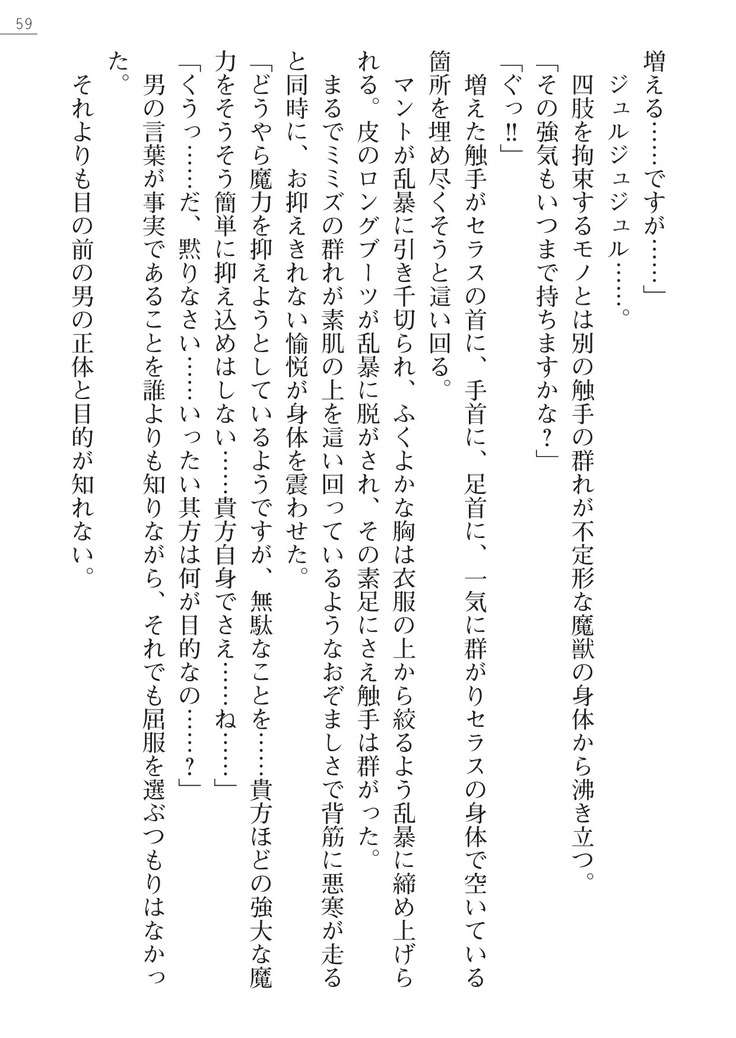 59
増える……ですが……」
ジュルジュジュル……。
四肢を拘束するモノとは別の触手の群れが不定形な魔獣の身体から沸き立つ。
「その強気もいつまで持ちますかな?」
「ぐっ!!」
増えた触手がセラスの首に、手首に、足首に、一気に群がりセラスの身体で空いている
箇所を埋め尽くそうと這い回る。
マントが乱暴に引き千切られ、ふくよかな胸は衣服の上から絞るよう乱暴に締め上げら
れる。皮のロングブーツが乱暴に脱がされ、その素足にさえ触手は群がった。
まるでミミズの群れが素肌の上を這い回っているようなおぞましさで背筋に悪寒が走る
と同時に、お抑えきれない愉悦が身体を震わせた。
「どうやら魔力を抑えようとしているようですが、無駄なことを……貴方ほどの強大な魔
力をそうそう簡単に抑え込めはしない……貴方自身でさえ……ね……」
「くうっ……だ、黙りなさい……いったい其方は何が目的なの……?」
男の言葉が事実であることを誰よりも知りながら、それでも屈服を選ぶつもりはなかっ
た。
それよりも目の前の男の正体と目的が知れない。